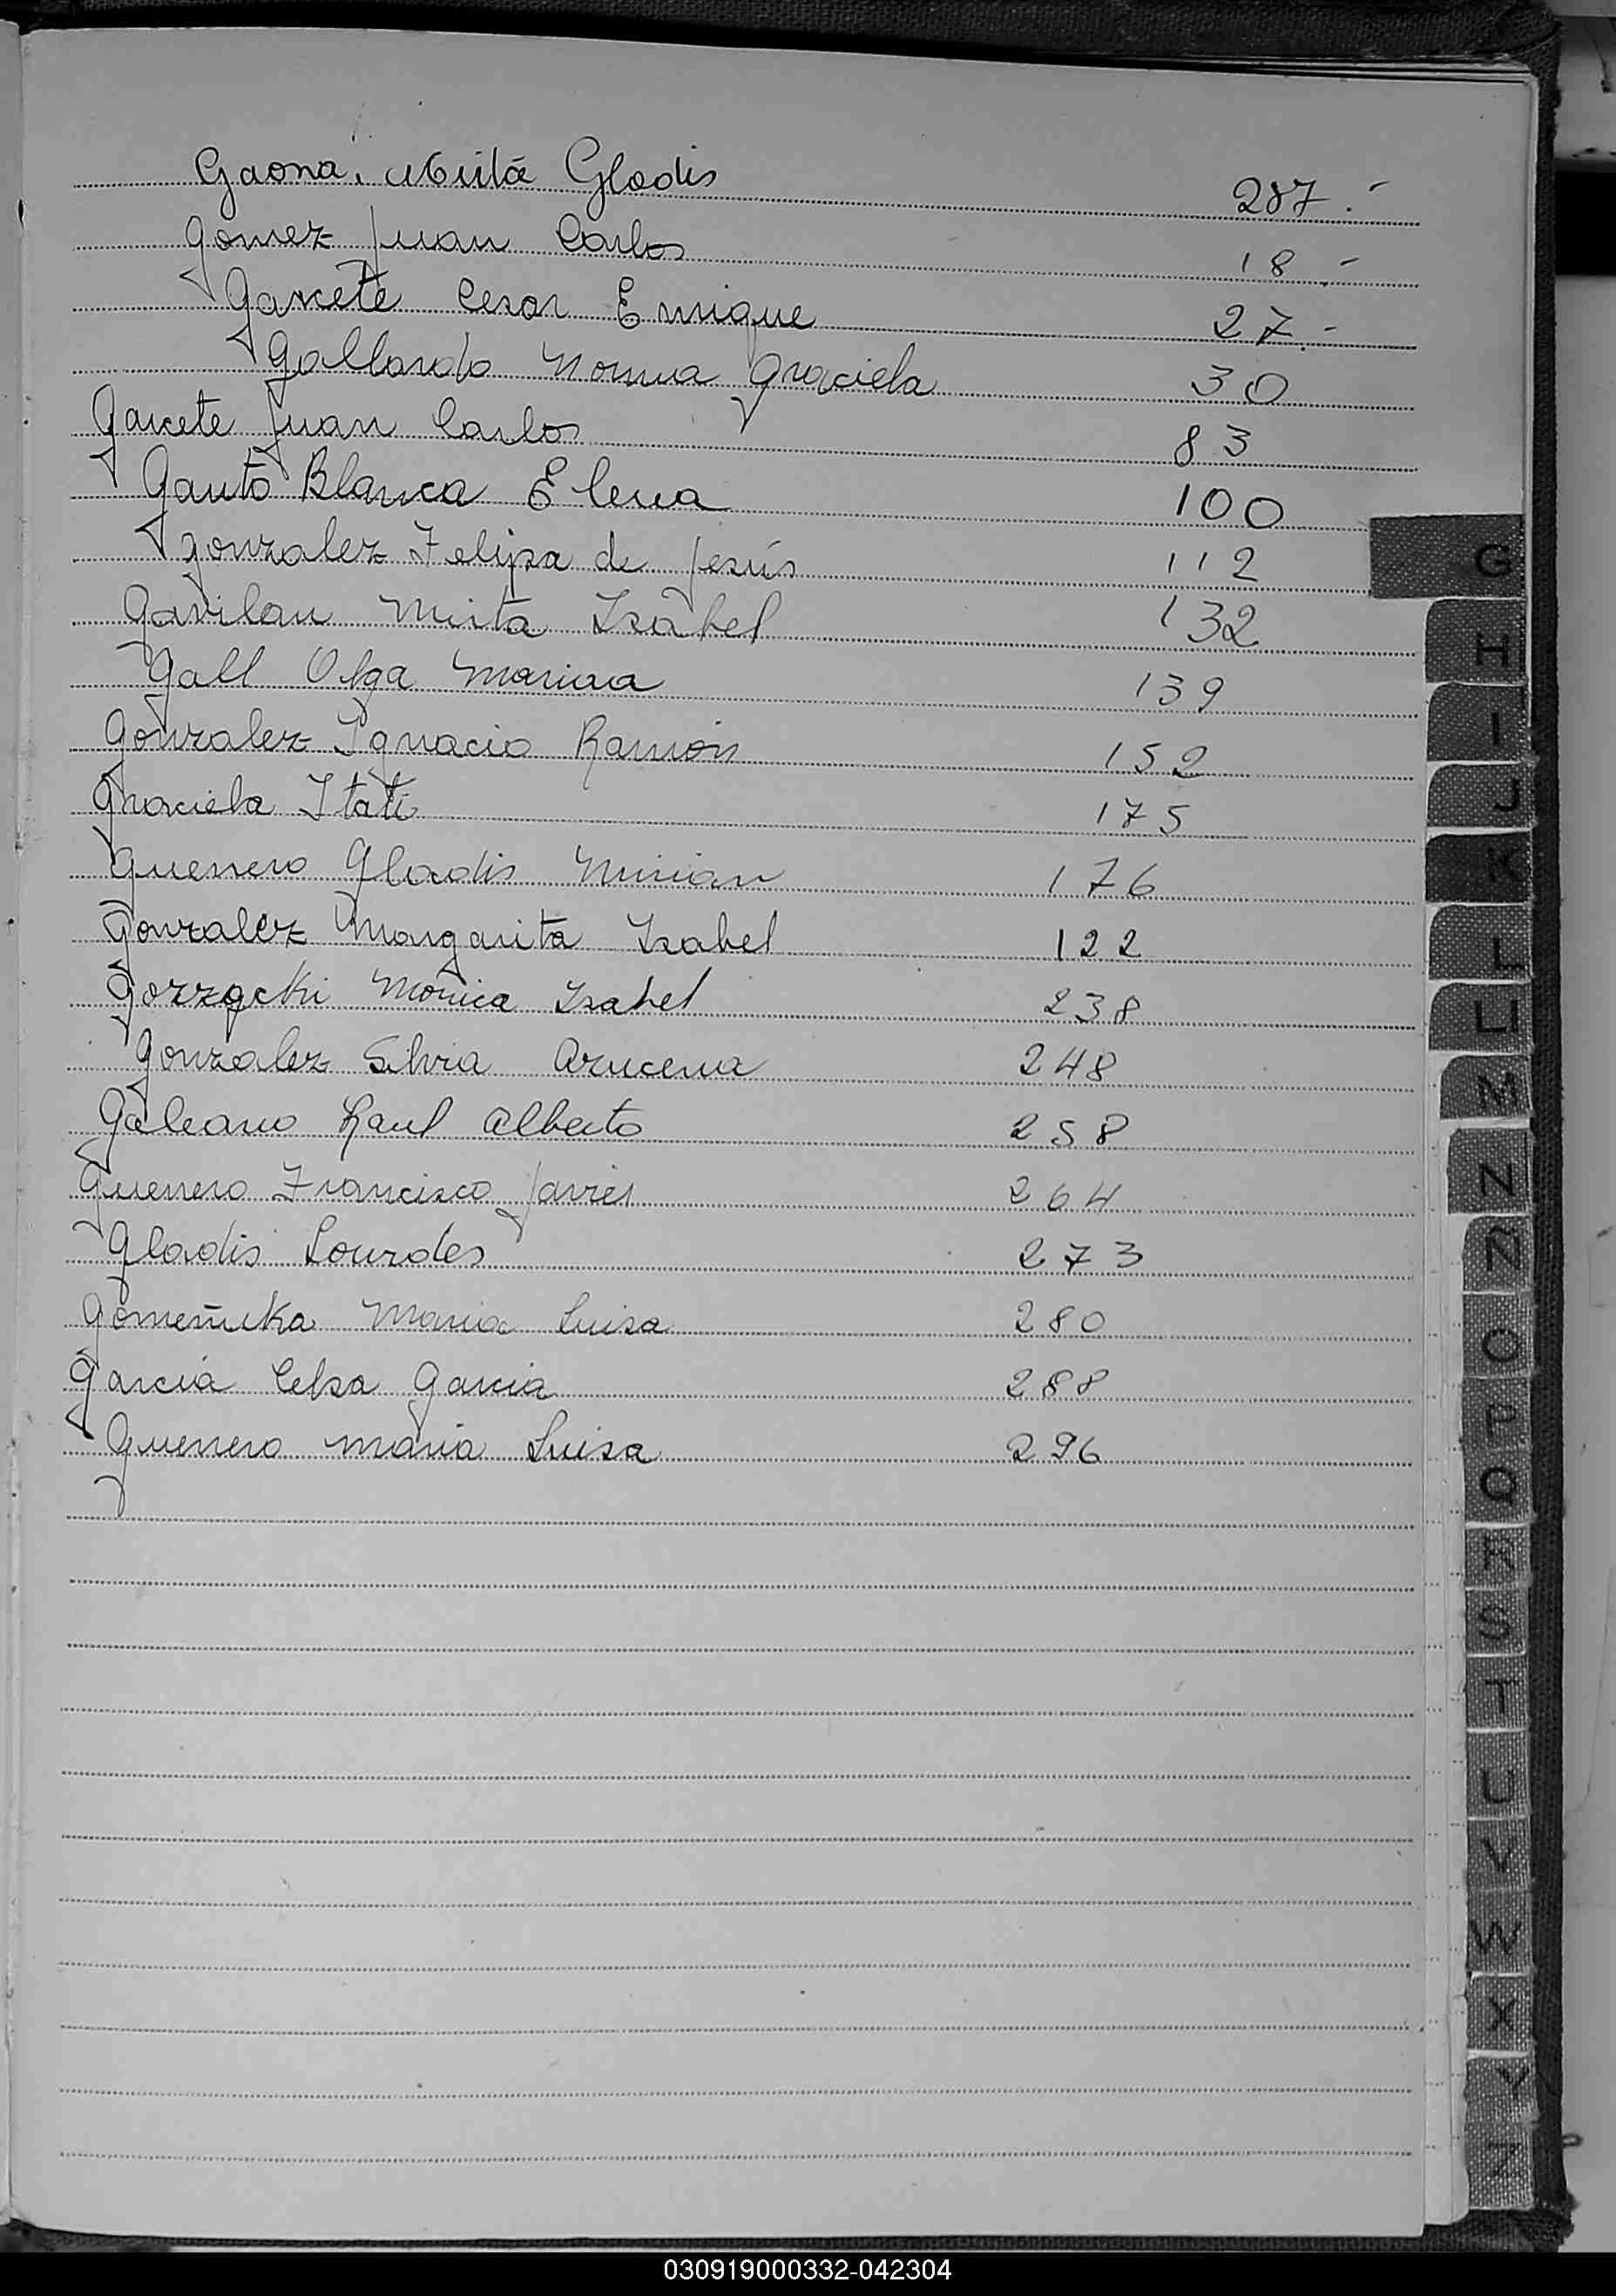 Gaona, Mirta Gladis 287.-
Gomez Juan Carlos 18.-
Garcete Cesar Enrique 27.-
Gallardo Norma Graciela 30
Garcete Juan Carlos 83
Gauto Blanca Elena 100
Gonzalez Felipa de Jesús 112
Gavilan Mirta Isabel 132
Gall Olga Marina 139
Gonzalez Ignacio Ramón 152
Graciela Itatí 175
Guerrero Gladis Mirian 176
Gonzalez Margarita Isabel 122
Monica Isabel 238
Gonzalez Silvia Azucena 248
Galeano Raul Alberto 258
Guerrero Francisco Javier 264
Gladis Lourdes 273
Maria Luisa 280
Garcia Celsa Garcia 288
Guerrero Maria Luisa 296
G
H
I
J
K
L
LI
M
N
Ñ
O
P
Q
R
S
T
U
V
W
X
Y
Z
030919000332-042304